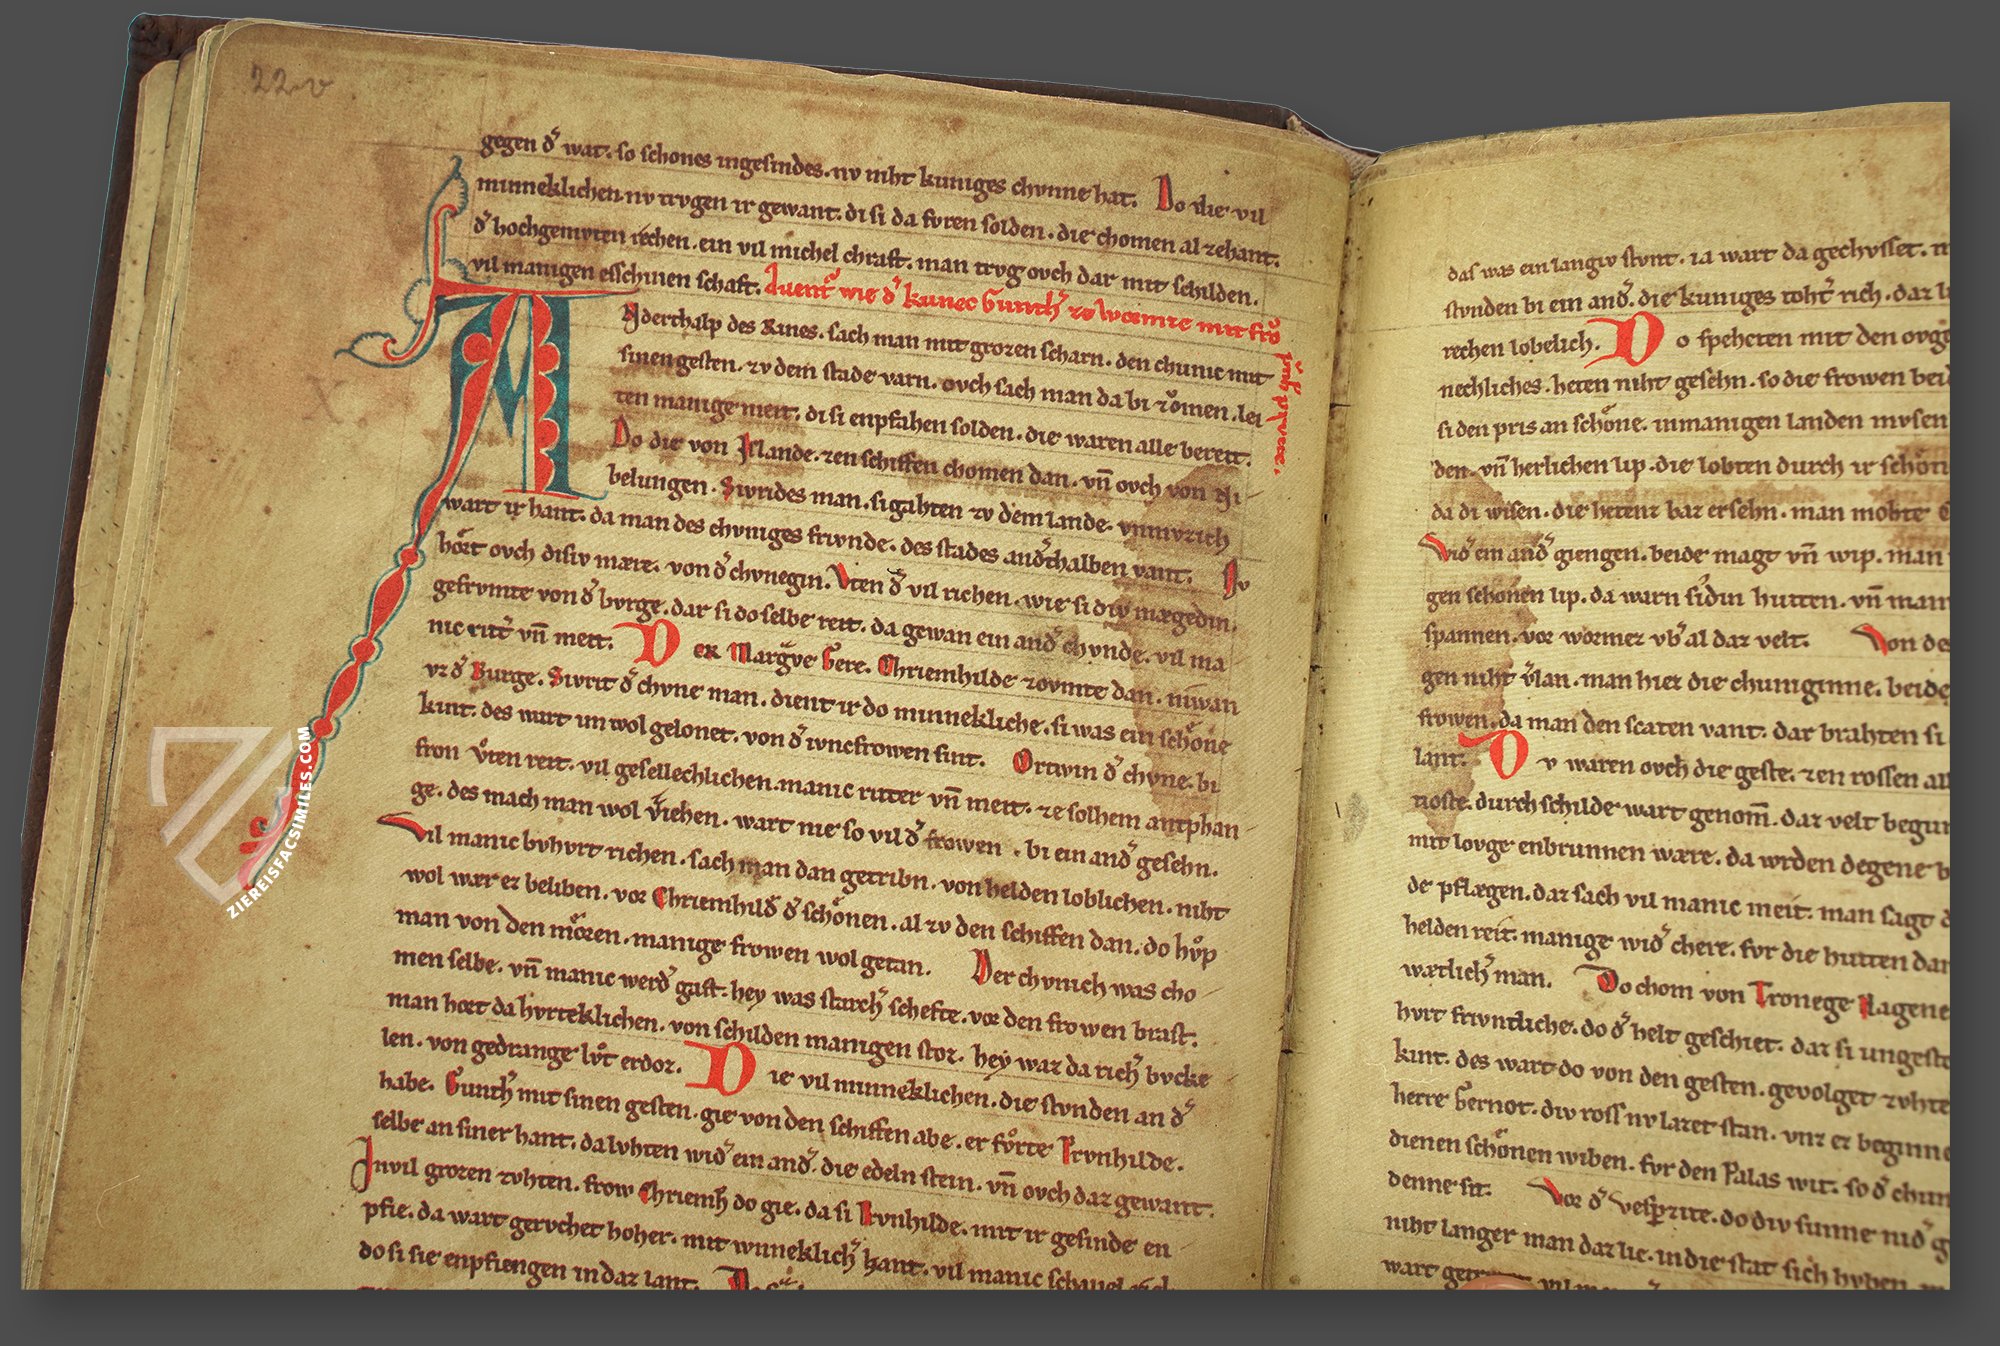 22v
gegen dˀ wat. so schones ingesindes. nv niht kuniges chvnne hat. Do die vil
minneklichen nv trvgen ir gewant. di si da fvren solden. die chomen al zehant.
dˀ hochgemvten rechen. ein vil michel chraft. man trvg ovch dar mit schilden.
vil manigen esschinen schaft. Auentˀ wie dˀ kunec Gunthˀ ze Wormze mit frŏ
Prvnh
Anderthalp des Rines. sach man mit grozen scharn. den chunic mit
sinen gesten. zv dem stade varn. ovch sach man da bi zŏmen. lei
ten manige meit. di si enpfahen solden. die waren alle bereit.
Do die von Islande. zen schiffen chomen dan. vn̄ ovch von Ni
belungen. Sivrides man. si gahten zv dem lande. vnmvzich
wart ir hant. da man des chvniges frivnde. des stades andˀthalben vant. Nv
hŏrt ovch disiv mære. von dˀ chvnegin. Vten dˀ vil richen. wie si div mægedin.
gefrvmte von dˀ bvrge. dar si do selbe reit. da gewan ein andˀ chvnde. vil ma
nic ritˀ vn̄ meit. Der Margˀve Gere. Chriemhilde zovmte dan. niwan
vz dˀ Burge. Sivrit dˀ chvne man. dient ir do minnekliche. si was ein schŏne
kint. des wart im wol gelonet. von dˀ ivncfrowen sint. Ortwin dˀ chvne. bi
fron vͦten reit. vil gesellechlichen. manic ritter vn̄ meit. ze solhem antphan
ge. des mach man wol vˀiehen. wart nie so vil dˀ frowen. bi ein andˀ gesehn.
Vil manic bvhvrt richen. sach man dan getribn. von helden loblichen. niht
wol wær ez beliben. vor Chriemhildˀ dˀ schŏnen. al zv den schiffen dan. do hvͦp
man von den mŏren. manige frowen wol getan. Der chvnich was cho
men selbe. vn̄ manic werdˀ gast. hey was starchˀ schefte. vor den frowen brast.
man hort da hvrteklichen. von schilden manigen stoz. hey waz da richˀ bvcke
len. von gedrange lvͦt erdoz. Die vil minneklichen. die stvnden an dˀ
habe. Gunthˀ mit sinen gesten. gie von den schiffen abe. er fvͦrte Prvnhilde.
selbe an siner hant. da lvhten widˀ ein andˀ. die edeln stein. vn̄ ovch daz gewant.
In vil grozen zvhten. frow Chriemhˀ do gie. da si Prvnhilde. mit ir gesinde en
pfie. da wart gervchet hoher. mit wnneklichˀ hant. vil manic schapel
do si sie enpfiengen in daz lant.
das was ein langiv stvnt. ia wart da gechvsset.
stvnden bi ein andˀ. die kuniges tohtˀ rich. daz
rechen lobelich. Do speheten mit den ovge
nechliches. heten niht gesehn. so die frowen beid
si den pris an schŏne. in manigen landen mvsen
den. vn̄ herlichen lip. die lobten durch ir schŏn
da di wisen. die hetenz baz ersehn. man mohte
Widˀ ein andˀ giengen. beide magt vn̄ wip. man
gen schŏnen lip. da warn sidin hutten. vn̄ man
spannen. vor wormez vbˀ al daz velt. Von de
gen niht vˀlan. man hiez die chuniginne. beide
frowen. da man den scaten vant. dar brahten si
lant. Nv waren ovch die geste. zen rossen all
tioste. durch schilde wart genom̄. daz velt begun
mit lovge enbrunnen wære. da wrden degene
de pflægen. daz sach vil manic meit. man sagt
helden reit. manige widˀ chere. fvr die hutten dar
wætlichˀ man. Do chom von Tronege Hagene
hvrt frivntliche. do dˀ helt geschiet. daz si ungesto
kint. des wart do von den gesten. gevolget zvhte
herre Gernot. div ross nv lazet stan. vnz ez beginne
dienen schŏnen wiben. fvr den Palas wit. so dˀ chun
denne sit. Vor dˀ vesperzite. do div sunne nidˀ g
niht langer man daz lie. in die stat sich hvben.
wart
ZIEREISFACSIMILES.COM